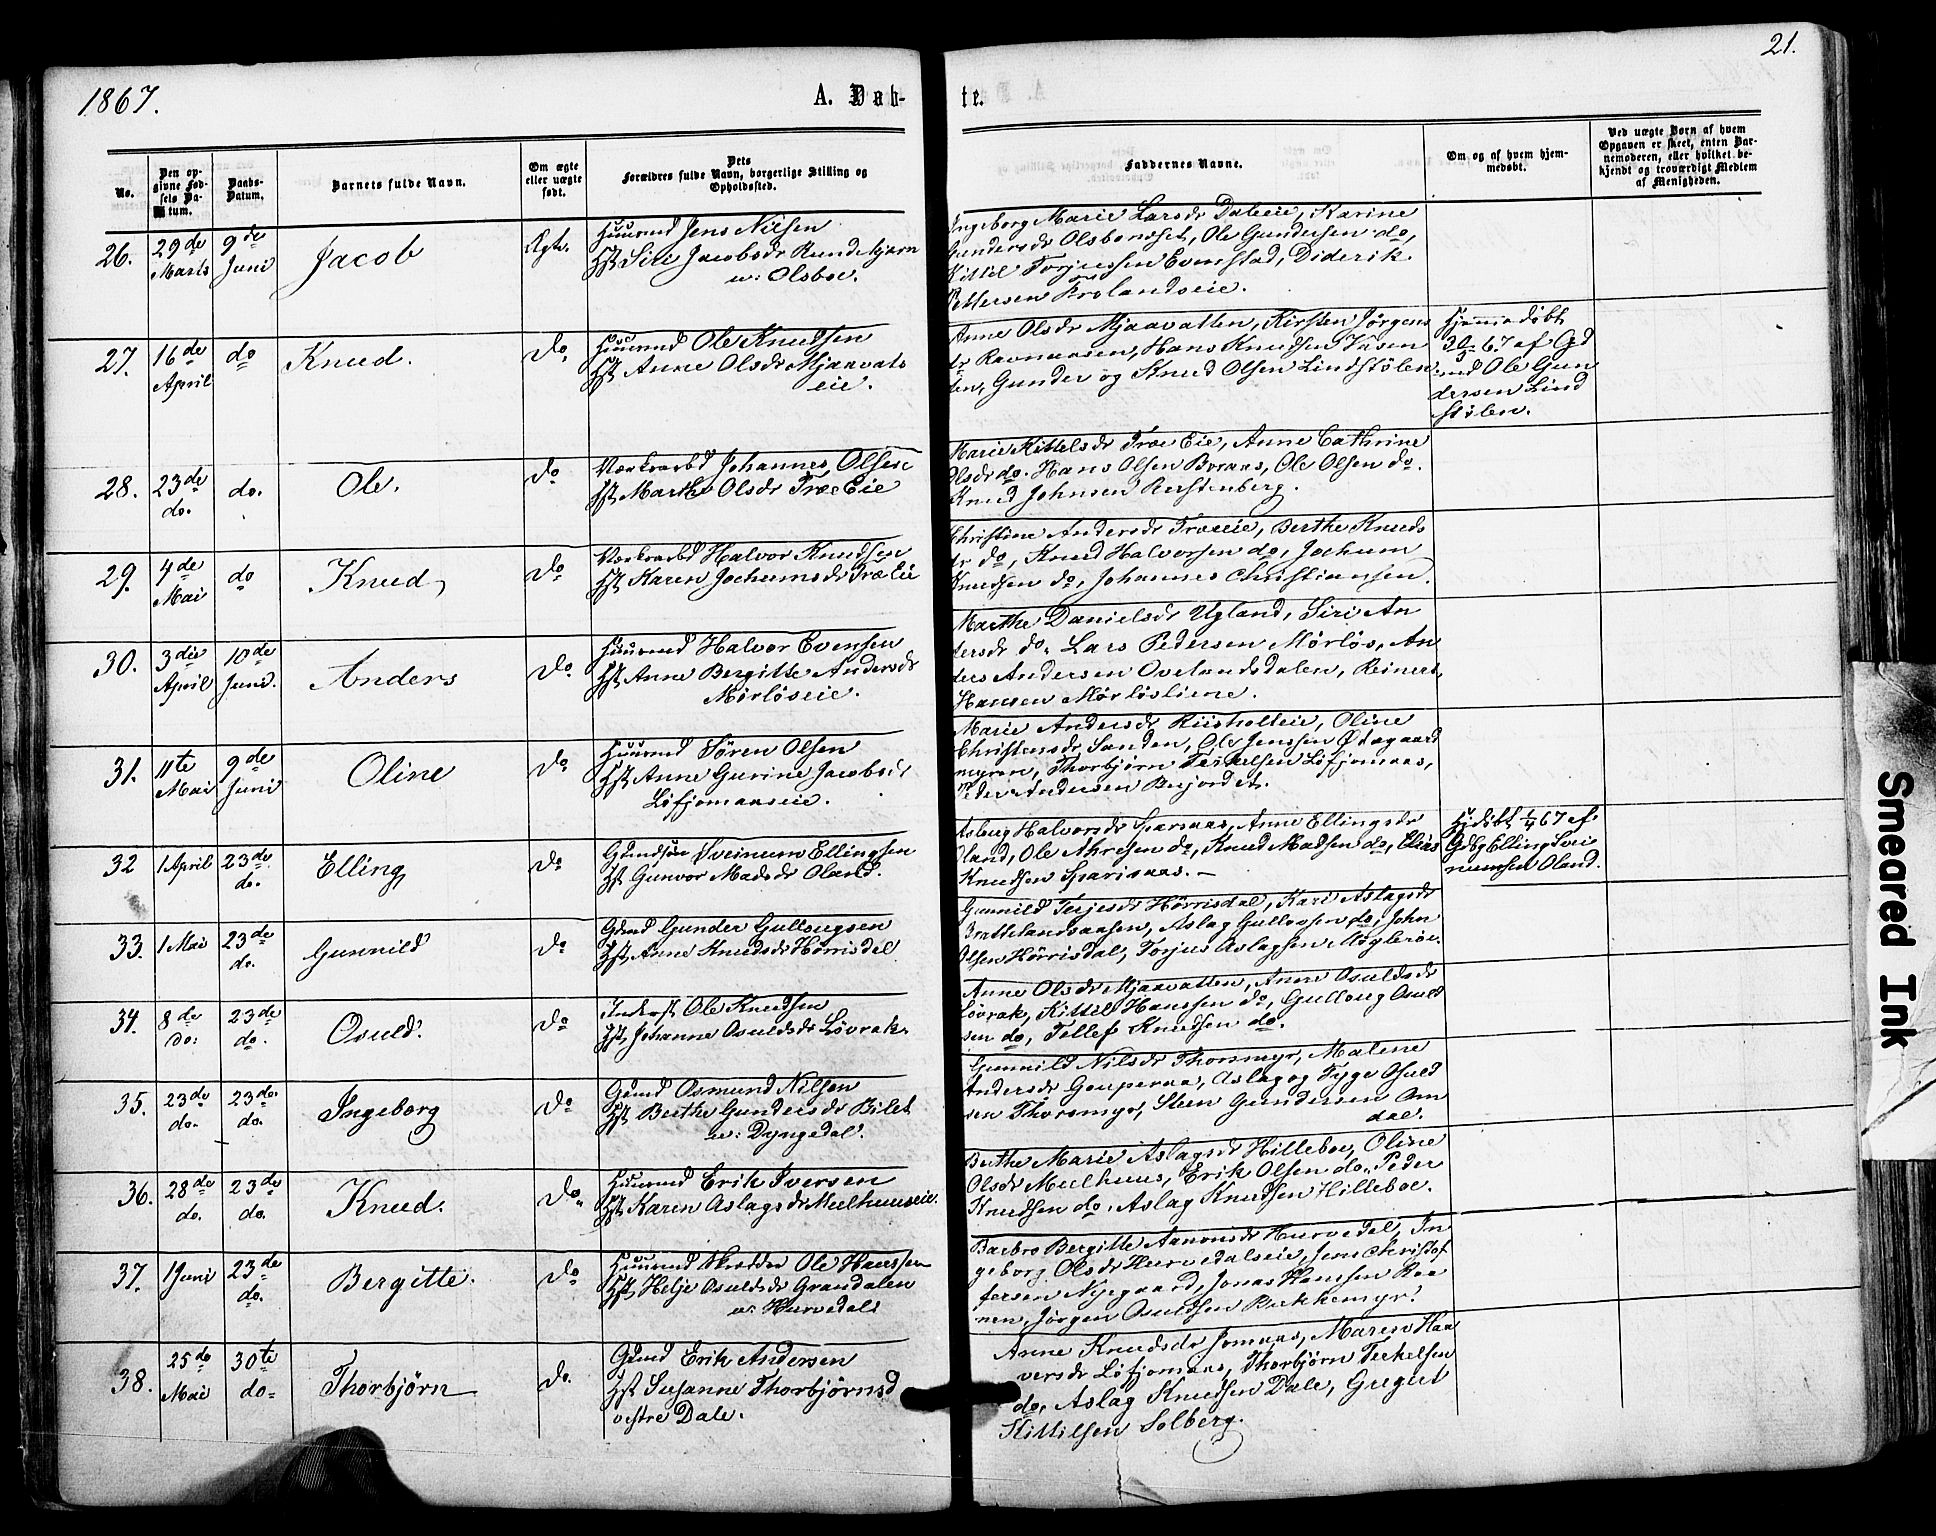 1867.
A. Døb-
te.
21.
No.
Den op-
givne Fød-
sels Da-
tum.
Daabs-
Datum.
Barnets fulde Navn.
Om ægte
eller uægte
født.
Dets
Forældres fulde Navn, borgerlige Stilling og
Opholdssted.
Faddernes Navne.
Om og af hvem hjem-
medøbt.
Ved uægte Børn af hvem
Opgaven er skeet, enten Bar-
nemoderen, eller hvilket be-
kjendt og troværdigt Medlem
af Menigheden.
26. 29de Marts 9de Juni Jacob Ægte.
Huusmd Jens Nilsen
Hst Jacobsdr
u: Olsboe.
Ingeborg Marie Larsdr Daleeie, Karine
Gundersdr Olsbonæset, Ole Gundersen do,
Kittil Torjussen Evenstad, Diderik
Pettersen Frolandseie.
27. 16de April do Knud. do
Huusmd Ole Knudsen
Hst Anne Olsdr Mjaavats
eie.
Anne Olsdr Mjaavatten, Kirsten Jørgens
dr Ravnaasen, Hans Knudsen Vasen
den, Gunder og Knud Olsen Lindstølen
Hjemmedøbt
67 af Gd
md Ole Gun
dersen Lind
stølen.
28. 23de do. do. Ole. do
Værksarbd Johannes Olsen
Hst Marthe Olsdr Træ Eie
Marie Kittelsdr Træ Eie, Anne Cathrine
Olsdr do. Hans Olsen Boraas, Ole Olsen do.
Knud Johnsen Rerstenberg.
29. 4de Mai do Knud do
Værksarbd Halvor Knudsen
Hst Karen Jochumsdr Træ Eie
Christine Andersdr Træeie, Berthe Knuds
dr do, Knud Halvorsen do, Jochum
Knudsen do, Johannes Christiansen.
30. 3die April 10de Juni. Anders do
Huusmd Halvor Evensen
Hst Anne Bergitte Andersdr
Mørløseie.
Marthe Danielsdr Ugland, Siri An
dersdr do, Lars Pedersen Mørløs, An
ders Andersen Ovelandsdalen, Reinert
Hansen Mørløsliene.
31. 11te Mai 9de Juni Oline do
Huusmd Søren Olsen
Hst Anne Gurine Jacobsdr
Løfjomaaseie.
Marie Andersdr Riisholteie, Oline
Christensdr Sanden, Ole Jenssen Ødegaard
myren, Thorbjørn Terkelsen Løfjomaas,
Peder Andersen Berjordet.
32 1 April 23de do. Elling do
Gdmdsøn Sveinum Ellingsen
Hst Gunvor Madsdr Oland.
Aslaug Halvorsdr Sparsaas, Anne Ellingsdr
Oland, Ole do, Knud Madsen do, Elias
Knudsen Sparsaas. –
Hjdøbt 1/4 67 af
Gdbg Elling Svei
numsen Oland.
33. 1 Mai 23de do. Gunnild do
Gdmd Gunder Gullougsen
Hst Anne Knudsdr Hørrisdal
Gunnild Terjesdr Hørrisdal, Kari Aslagsdr
Brattelandsaasen, Aslag Gullougsen do, John
Olsen Hørrisdal, Torjus Aslagsen Møglerøe.
34. 8de do. 23de do. Osuld. do
Inderst Ole Knudsen
Hst Johanne Osuldsdr Løvrak.
Anne Olsdr Mjaavatten, Anne Osuldsdr
Løvrak, Kittil Hanssen do, Gulloug Osuld
sen do, Tellef Knudsen do.
35. 23de do. 23de do. Ingeborg do
Gdmd Osmund Nilsen
Hst Berthe Gundersdr Bilet
u: Dyngedal.
Gunnild Nilsdr Thorsmyr, Malene
Andersdr Gouperaa, Aslag og Tyge Osuld
sen Thorsmyr, Steen Gundersen Om
dal.
36. 28de do. 23de do. Knud. do.
Huusmd Erik Iversen
Hst Karen Aslagsdr Mulhuuseie.
Berthe Marie Aslagsdr Hilleboe, Oline
Olsdr Mulhuus, Erik Olsen do, Peder
Knudsen do, Aslag Knudsen Hilleboe.
37. 1 Juni 23de do. Bergitte. do
Huusmd Skrædder Ole Hanssen
Hst Helje Osuldsdr Grandalen
u: Hurvedals
Barbro Bergitte Aanonsdr Hurvedal, In
geborg Olsdr Hurvedalseie, Jens Christof
fersen Nyegaard, Jonas Hanssen Raa
nen, Jørgen Osuldsen Bækkemyr.
38. 25de Mai 30te do. Thorbjørn do.
Gdmd Erik Andersen
Hst Susanne Thorbjørnsd
vestre Dale.
Anne Knudsdr Jomaas, Maren Haa
versdr Løfjomaas, Thorbjørn Terkelsen
do, Aslag Knudsen Dale, Gregert
Kittilsen Solberg.
Smeared Ink